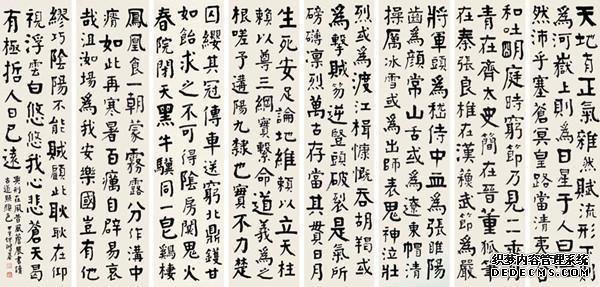 天地有正氣雜然賦流形下則
爲河嶽上則爲日星于人曰浩
然沛乎塞蒼冥皇路當清夷含
和吐明庭時窮節乃見一一垂丹
青在齊太史簡在晉董狐筆
在秦張良椎在漢蘇武節爲嚴
將軍頭爲嵇侍中血爲張睢陽
齒爲顏常山舌或爲遼東帽清
操厲冰雪或爲出師表鬼神泣壯
烈或爲渡江楫慷慨吞胡羯或
爲擊賊笏逆豎頭破裂是氣所
磅礴凜烈萬古存當其貫日月
生死安足論地維賴以立天柱
賴以尊三綱實繫命道義爲之
根嗟予遘陽九隸也實不力楚
囚纓其冠傳車送窮北鼎鑊甘
如飴求之不可得陰房闃鬼火
春院閟天黑牛驥同一皂雞棲
鳳凰食一朝蒙霧露分作溝中
瘠如此再寒暑百癘自辟易哀
哉沮洳場爲我安樂國豈有他
繆巧陰陽不能賊顧此耿耿在仰
視浮雲白悠悠我心悲蒼天曷
有極哲人日已遠
典刑在夙昔風簷展書讀
古道照顏色
织梦内容管理系统
DEDECMS.COM